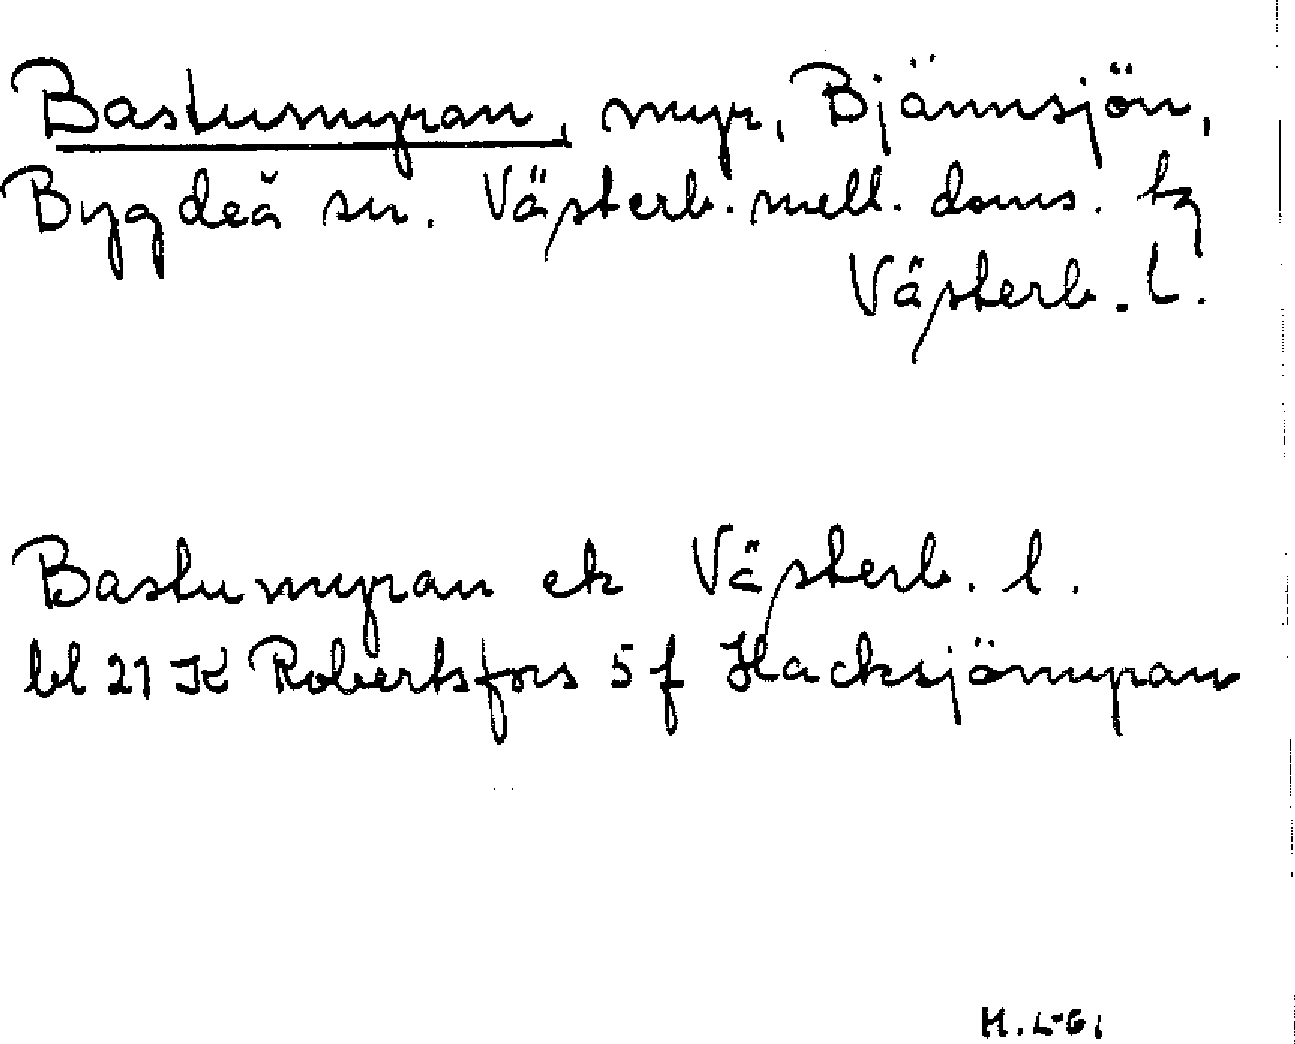 Bastumyran, myr, Bjännsjön,
Bygdeå sn. Västerb. mell. doms. tg
Västerb. l.
Bastumyran ek Västerb. l.
bl 21 K Robertsfors 5 f Hacksjömyran
H. L-G.